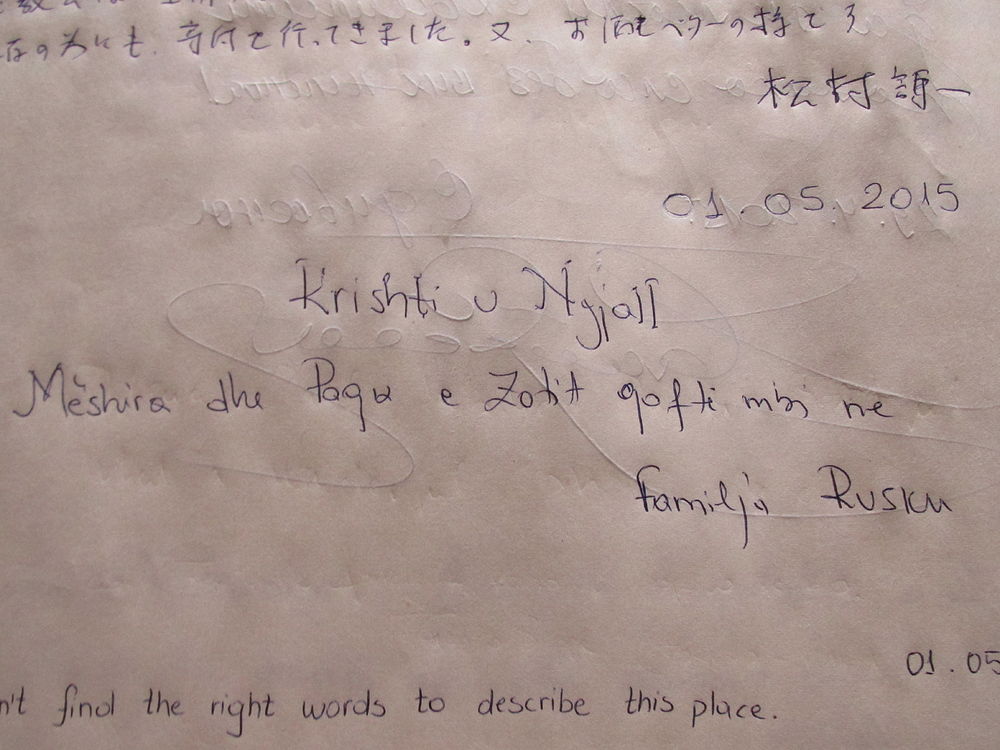 の為にも、寄付を行ってきました。又、お酒も
松村
01.05.2015
Krishti u Ngjall
Mëshira dhe Paqa e Zotit qoftë mbi ne
Familja Rusku
01.05
n't find the right words to describe this place.